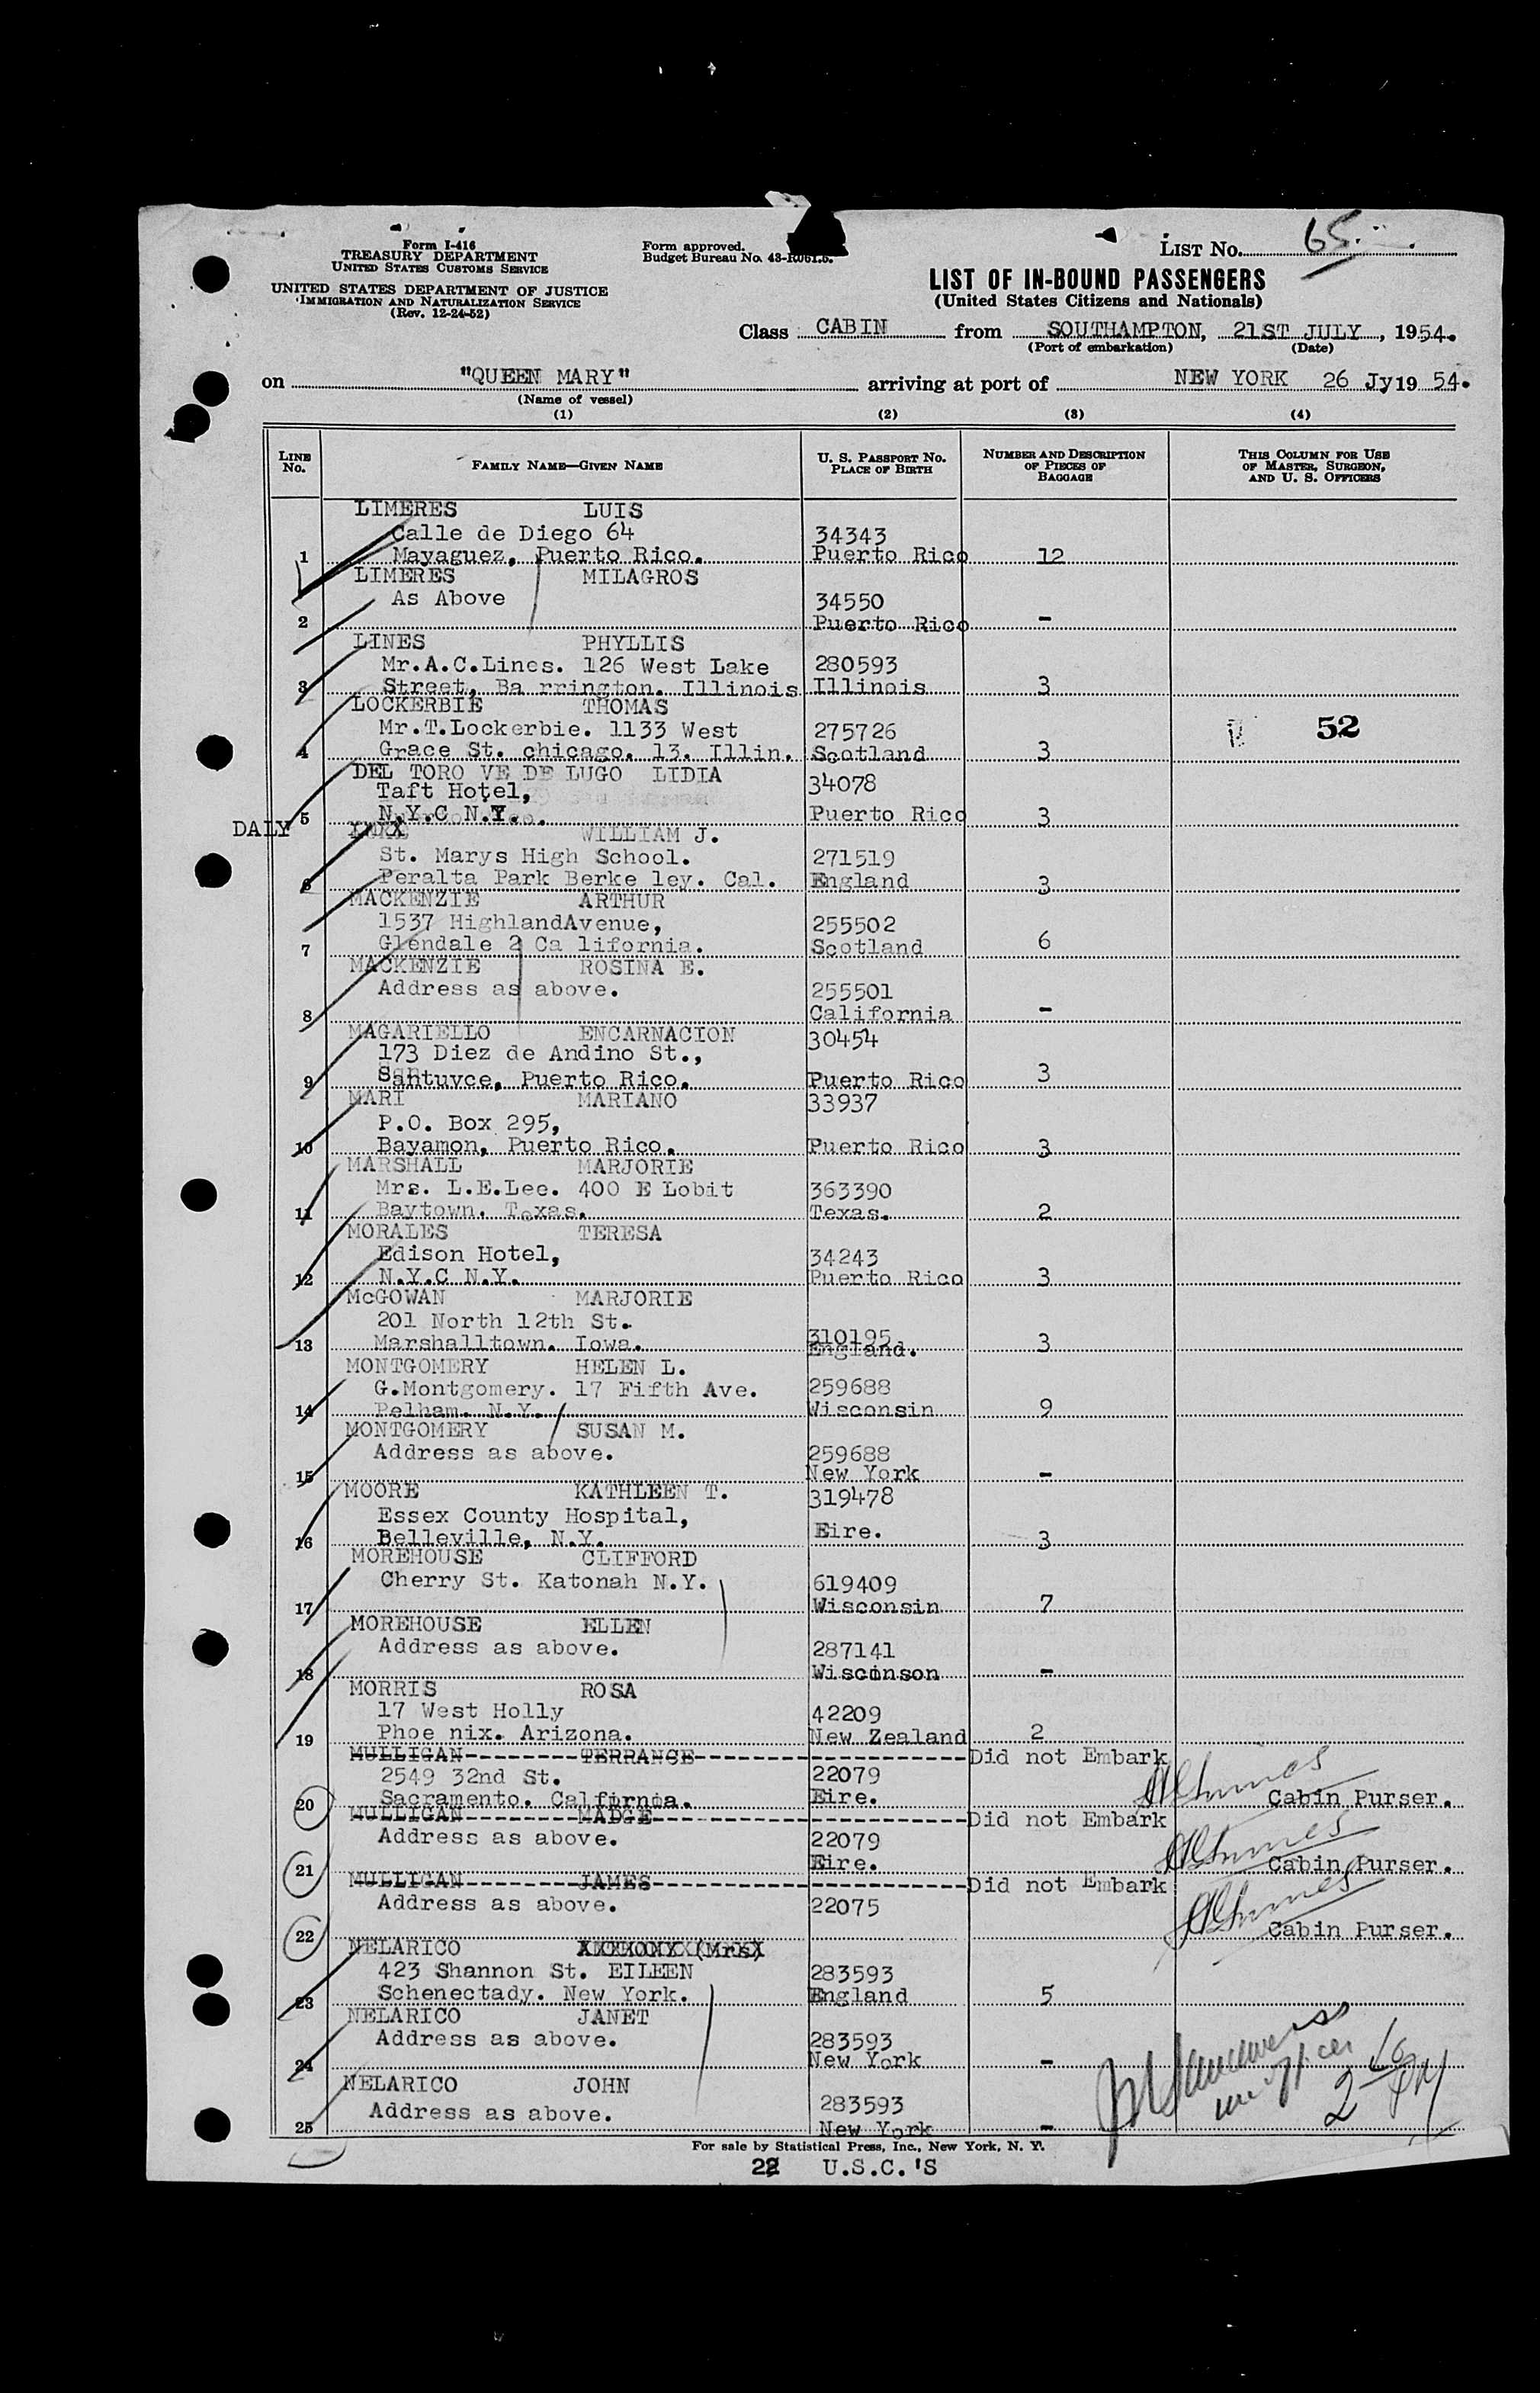 Form I-416
TREASURY DEPARTMENT
UNITED STATES CUSTOMS SERVICE
UNITED STATES DEPARTMENT OF JUSTICE
IMMIGRATION AND NATURALIZATION SERVICE
(Rev. 12-24-52)
Form approved.
Budget Bureau No.
LIST No. 65
LIST OF IN-BOUND PASSENGERS
(United States Citizens and Nationals)
Class CABIN from SOUTHAMPTON, 21ST JULY, 1954.
(Port of embarkation) (Date)
on "QUEEN MARY" arriving at port of NEW YORK 26 Jy 19 54.
(Name of vessel)
(1) (2) (3) (4)
LINE No. FAMILY NAME—GIVEN NAME U. S. PASSPORT NO. PLACE OF BIRTH NUMBER AND DESCRIPTION OF PIECES OF BAGGAGE THIS COLUMN FOR USE OF MASTER, SURGEON, AND U. S. OFFICERS
LIMERES LUIS
Calle de Diego 64 34343
1 Mayaguez, Puerto Rico. Puerto Rico 12
LIMERES MILAGROS
As Above 34550
2 Puerto Rico -
LINES PHYLLIS
Mr.A.C.Lines. 126 West Lake 280593
3 Street, Ba rrington. Illinois Illinois 3
LOCKERBIE THOMAS
Mr.T.Lockerbie. 1133 West 275726 52
4 Grace St. chicago. 13. Illin. Scotland 3
DEL TORO VE DE LUGO LIDIA
Taft Hotel, 34078
5 N.Y.C N.Y. Puerto Rico 3
DALY WILLIAM J.
St. Marys High School. 271519
6 Peralta Park Berke ley. Cal. England 3
MACKENZIE ARTHUR
1537 HighlandAvenue, 255502
7 Glendale 2 Ca lifornia. Scotland 6
MACKENZIE ROSINA E.
Address as above. 255501
8 California -
MAGARIELLO ENCARNACION 30454
173 Diez de Andino St.,
9 Santuvce, Puerto Rico. Puerto Rico 3
MARI MARIANO 33937
P.O. Box 295,
10 Bayamon, Puerto Rico. Puerto Rico 3
MARSHALL MARJORIE
Mrs. L.E.Lee. 400 E Lobit 363390
11 Baytown. Texas. Texas. 2
MORALES TERESA
Edison Hotel, 34243
12 N.Y.C N.Y. Puerto Rico 3
McGOWAN MARJORIE
201 North 12th St. 310195
13 Marshalltown. Iowa. England. 3
MONTGOMERY HELEN L.
G.Montgomery. 17 Fifth Ave. 259688
14 Pelham. N.Y. Wisconsin 9
MONTGOMERY SUSAN M.
Address as above. 259688
15 New York -
MOORE KATHLEEN T. 319478
Essex County Hospital,
16 Belleville, N.Y. Eire. 3
MOREHOUSE CLIFFORD
Cherry St. Katonah N.Y. 619409
17 Wisconsin 7
MOREHOUSE ELLEN
Address as above. 287141
18 Wisconson -
MORRIS ROSA
17 West Holly 42209
19 Phoe nix. Arizona. New Zealand 2
MULLIGAN--------TERRANCE--------------------Did not Embark
2549 32nd St. 22079
20 Sacramento. California. Eire. Cabin Purser.
MULLIGAN--------MADGE--------------------Did not Embark
Address as above. 22079
21 Eire. Cabin Purser.
MULLIGAN--------JAMES--------------------Did not Embark
Address as above. 22075
22 Cabin Purser.
NELARICO
423 Shannon St. EILEEN 283593
23 Schenectady. New York. England 5
NELARICO JANET
Address as above. 283593
24 New York -
NELARICO JOHN
Address as above. 283593
25 New York -
For sale by Statistical Press, Inc., New York, N. Y.
22 U.S.C.'S